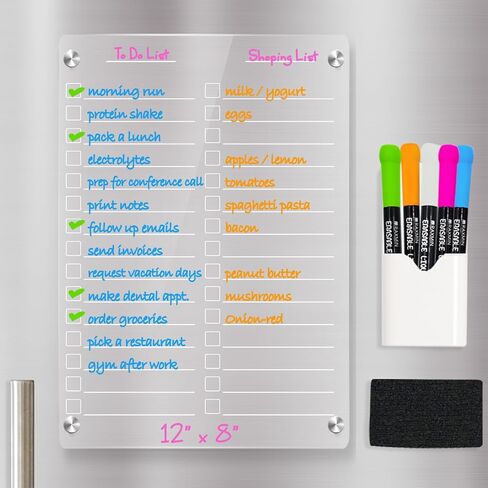 To Do List
morning run
protein shake
pack a lunch
electrolytes
prep for conference call
print notes
follow up emails
send invoices
request vacation days
make dental appt.
order groceries
pick a restaurant
gym after work
Shoping List
milk / yogurt
eggs
apples / lemon
tomatoes
spaghetti pasta
bacon
peanut butter
mushrooms
Onion-red
12" x 8"
ERASABLE
ERASABLE
ERASABLE
ERASABLE